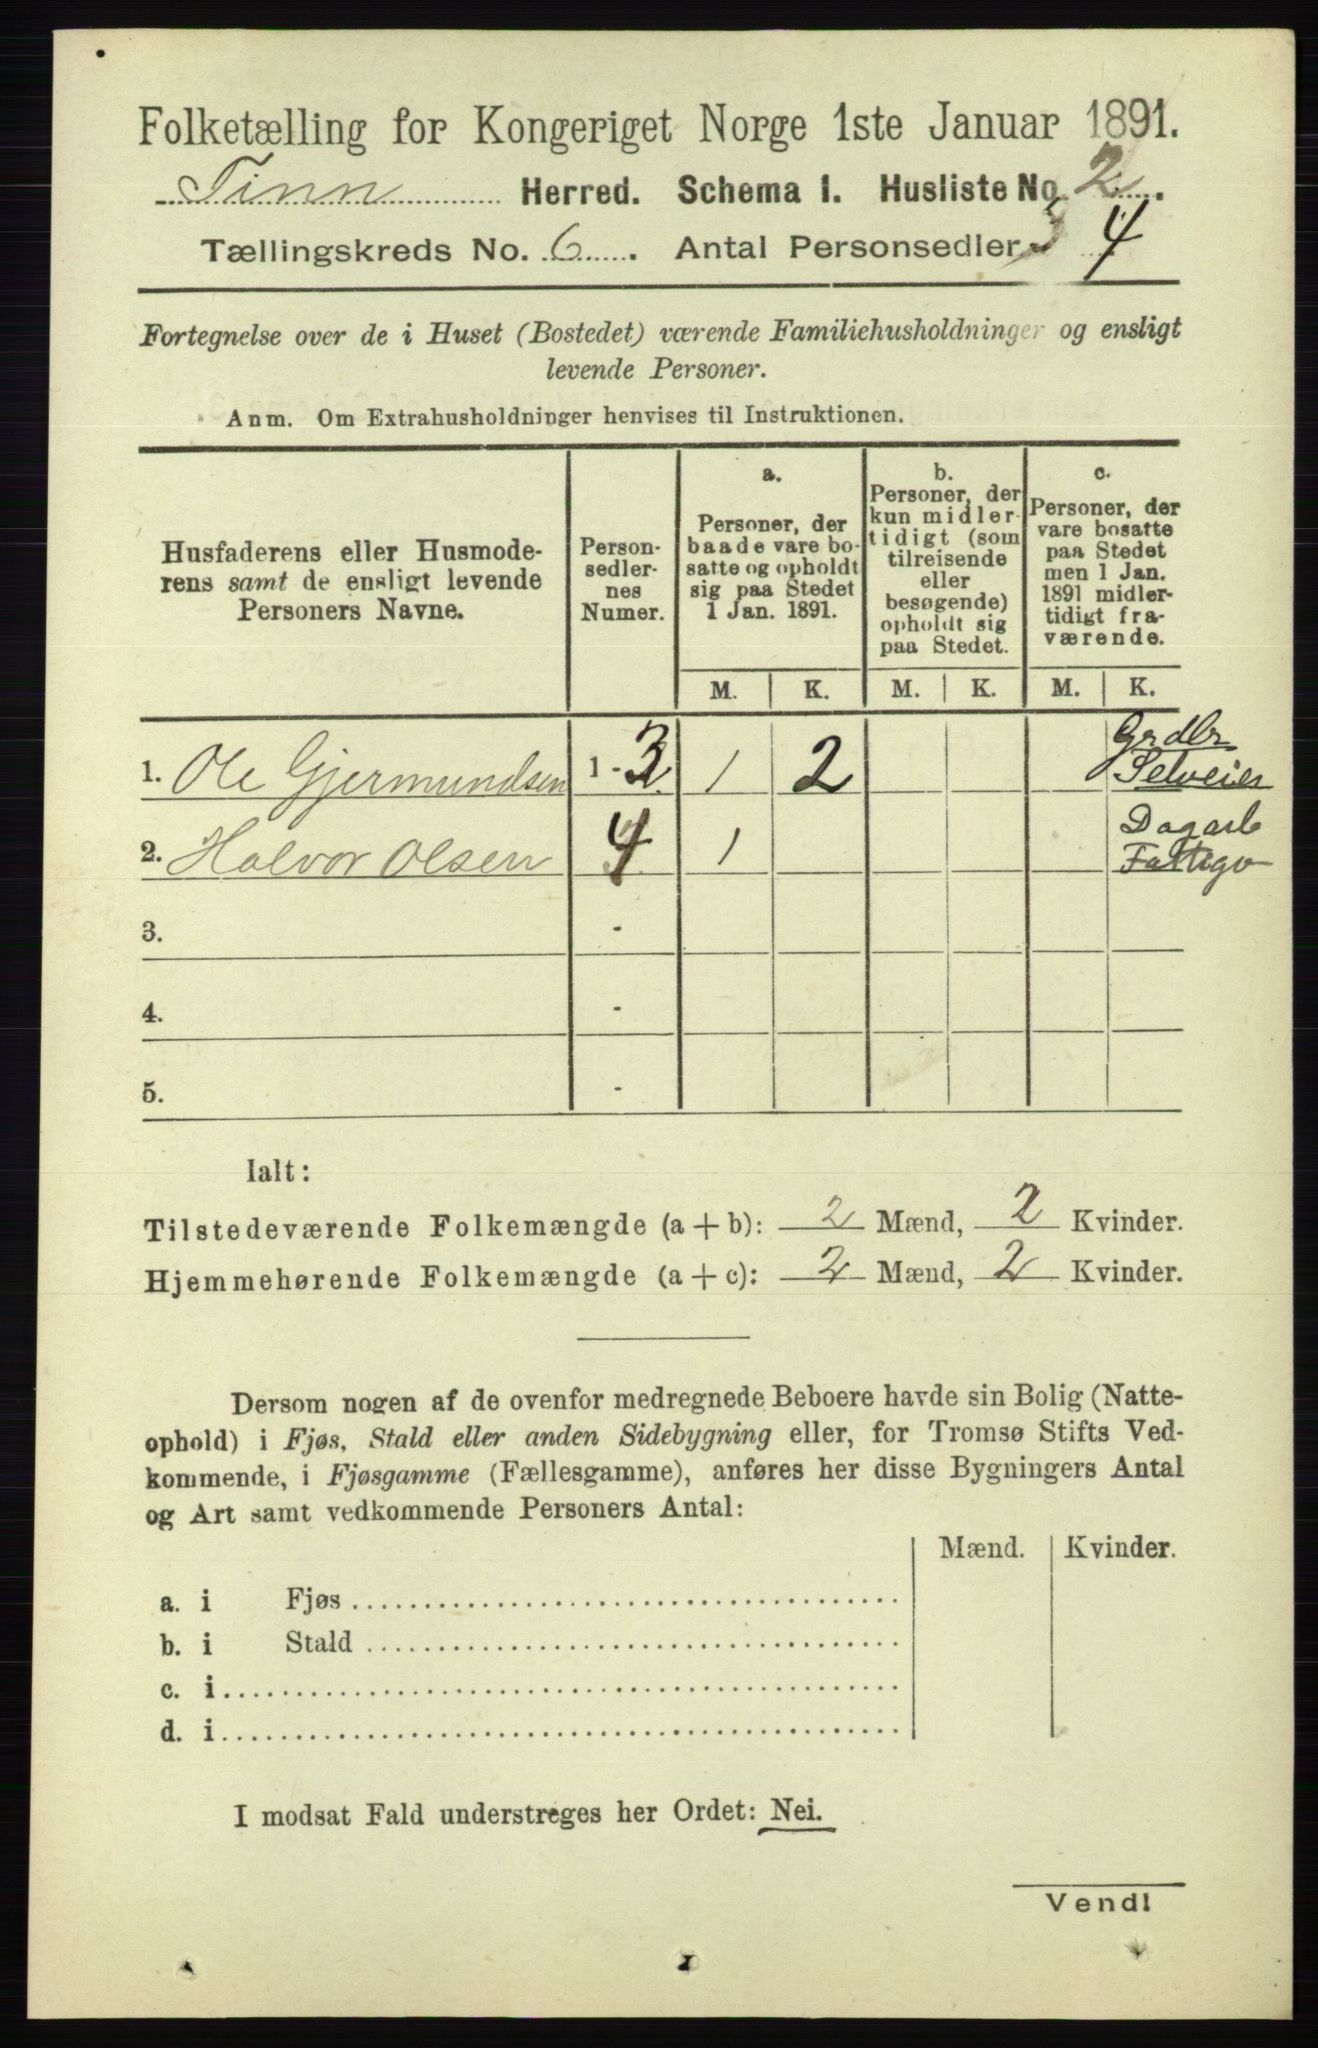 Folketælling for Kongeriget Norge 1ste Januar 1891.
Tinn Herred. Schema I. Husliste No. 2
Tællingskreds No. 6. Antal Personsedler 4
Fortegnelse over de i Huset (Bostedet) værende Familiehusholdninger og ensligt
levende Personer.
Anm. Om Extrahusholdninger henvises til Instruktionen.
Husfaderens eller Husmode-
rens samt de ensligt levende
Personers Navne.
Person-
sedler-
nes
Numer.
a.
Personer, der
baade vare bo-
satte og opholdt
sig paa Stedet
1 Jan. 1891.
b.
Personer, der
kun midler-
tidigt (som
tilreisende
eller
besøgende)
opholdt sig
paa Stedet.
c.
Personer, der
vare bosatte
paa Stedet
men 1 Jan.
1891 midler-
tidigt fra-
værende.
M. K. M. K. M. K.
1. Ole Gjermundsen 1 - 3 1 2 Grdbr Selveier
2. Halvor Olsen 4 1 Dagarb Fattigv
3. -
4. -
5. -
Ialt:
Tilstedeværende Folkemængde (a + b): 2 Mænd, 2 Kvinder.
Hjemmehørende Folkemængde (a + c): 2 Mænd, 2 Kvinder.
Dersom nogen af de ovenfor medregnede Beboere havde sin Bolig (Natte-
ophold) i Fjøs, Stald eller anden Sidebygning eller, for Tromsø Stifts Ved-
kommende, i Fjøsgamme (Fællesgamme), anføres her disse Bygningers Antal
og Art samt vedkommende Personers Antal:
Mænd. Kvinder.
a. i Fjøs
b. i Stald
c. i
d. i
I modsat Fald understreges her Ordet: Nei.
Vend!